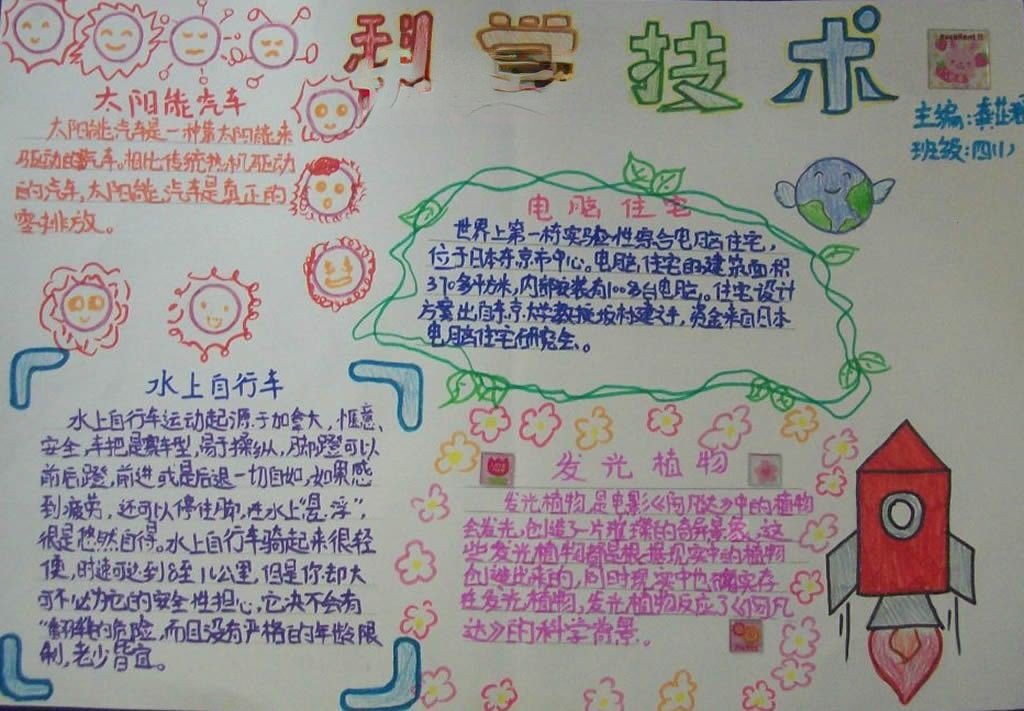 科学技术
excellent!!
主编:龚芷
班级:四(1)
太阳能汽车
太阳能汽车是一种靠太阳能来
驱动的汽车。相比传统热机驱动
的汽车,太阳能汽车是真正的
零排放。
电脑住宅
世界上第一栋实验性综合电脑住宅,
位于日本东京市中心。电脑住宅的建筑面积
370多平方米,内部安装有100多台电脑。住宅设计
方案出自东京大学教授坂村建之手,资金来自日本
电脑住宅研究会。
水上自行车
水上自行车运动起源于加拿大,惬意、
安全,车把是赛车型,易于操纵,脚蹬可以
前后蹬,前进或是后退一切自如,如果感
到疲劳,还可以停住脚,在水上“漫浮”,
很是悠然自得。水上自行车骑起来很轻
便,时速可达到8至11公里,但是你却大
可不必为它的安全性担心,它决不会有
的危险,而且没有严格的年龄限
制,老少皆宜。
发光植物
发光植物,是电影《阿凡达》中的植物
会发光,创造了一片璀璨的奇异景象,这
些发光植物都是根据现实中的植物
创造出来的,同时现实中也确实存
在发光植物,发光植物反应了《阿凡
达》的科学背景。